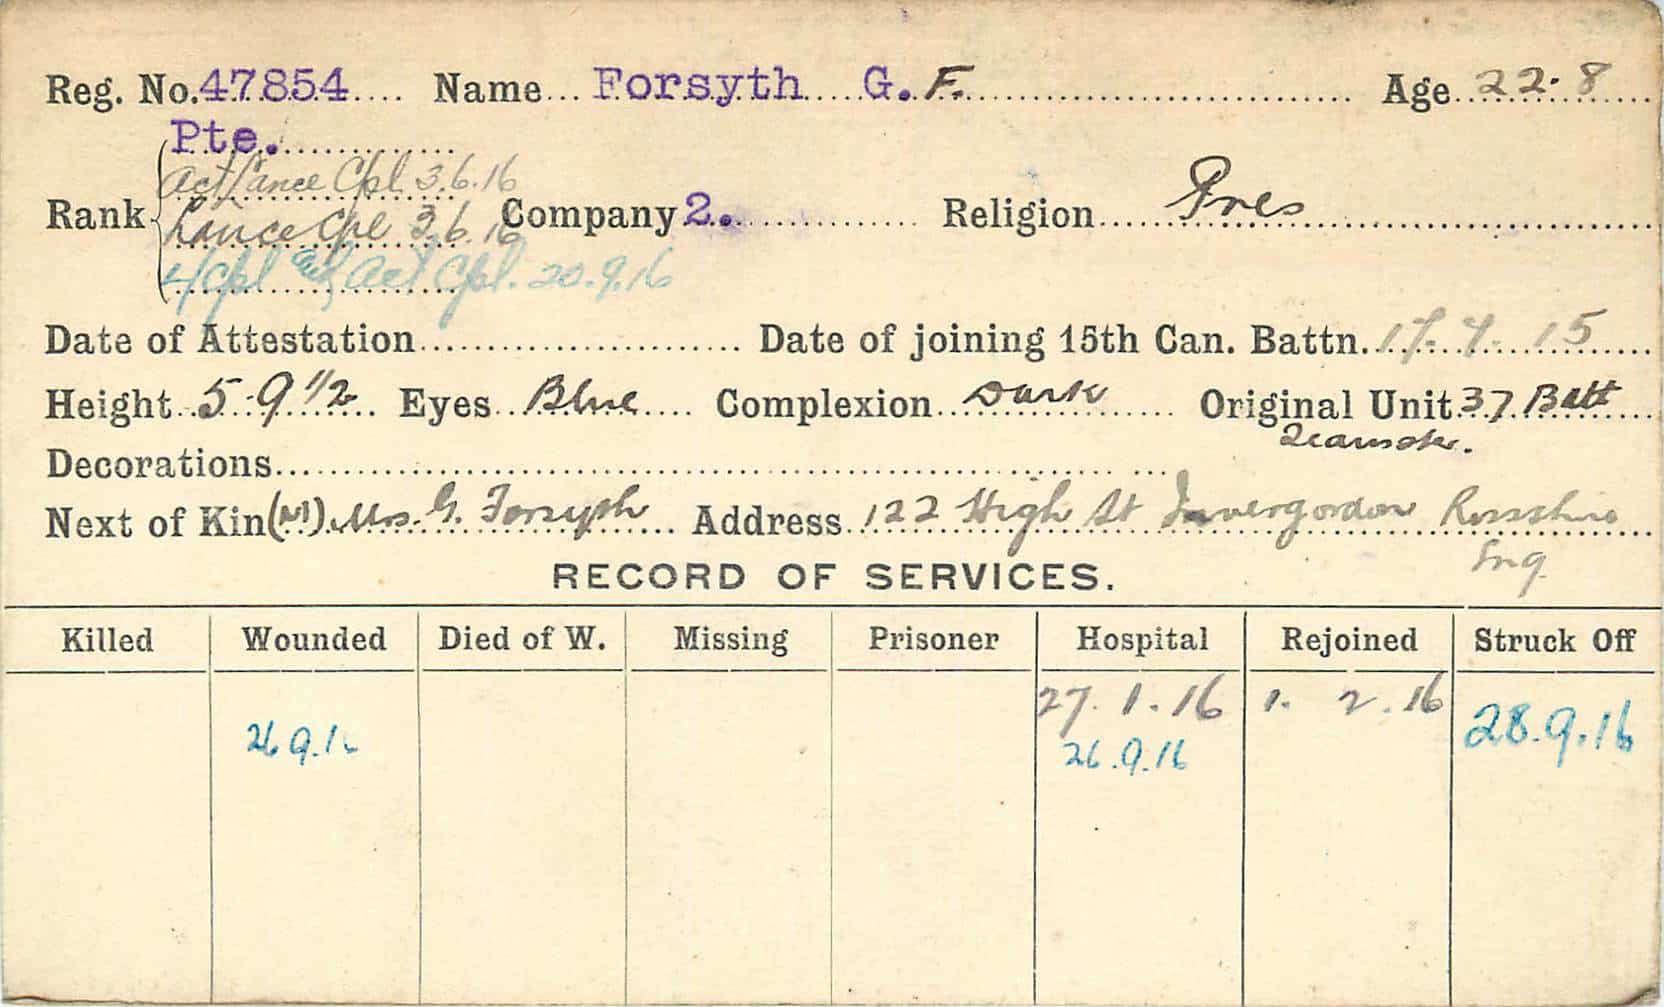 Reg. No. 47854 Name Forsyth G. F. Age 22.8
Pte.
Act Lance Cpl 3.6.16
Rank Lance Cpl 3.6.16 Company 2. Religion Pres
L/Cpl Act Cpl. 20.9.16
Date of Attestation Date of joining 15th Can. Battn. 17.7.15
Height 5.9 1/2 Eyes Blue Complexion Dark Original Unit 37 Batt
Teamster.
Decorations
Next of Kin (M) Mrs. G. Forsyth Address 122 High St Invergordon Rossshire
Eng
RECORD OF SERVICES.
Killed Wounded Died of W. Missing Prisoner Hospital Rejoined Struck Off
27.1.16 1. 2.16
26.9.16 26.9.16 28.9.16